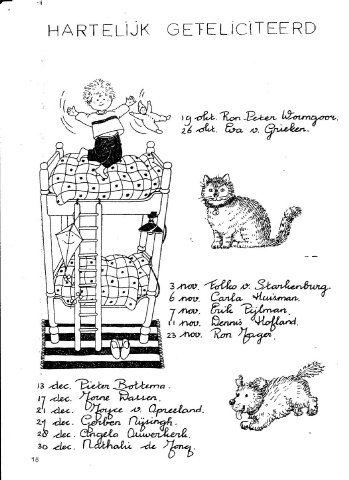 HARTELIJK GEFELICITEERD
19 okt. Ron Peter Wormgoor.
26 okt. Eva v. Grieken.
3 nov. Folko v. Starkenburg
6 nov. Carla Huisman.
7 nov. Erik Pijlman.
11 nov. Dennis Hofland.
23 nov. Ron Jager.
13 dec. Pieter Bottema.
17 dec. Jorne Dassen.
21 dec. Joyce v. Opreeland.
27 dec. Gerben Nijsingh.
28 dec. Angela Ouwerkerk.
30 dec. Nathalie de Jong.
18